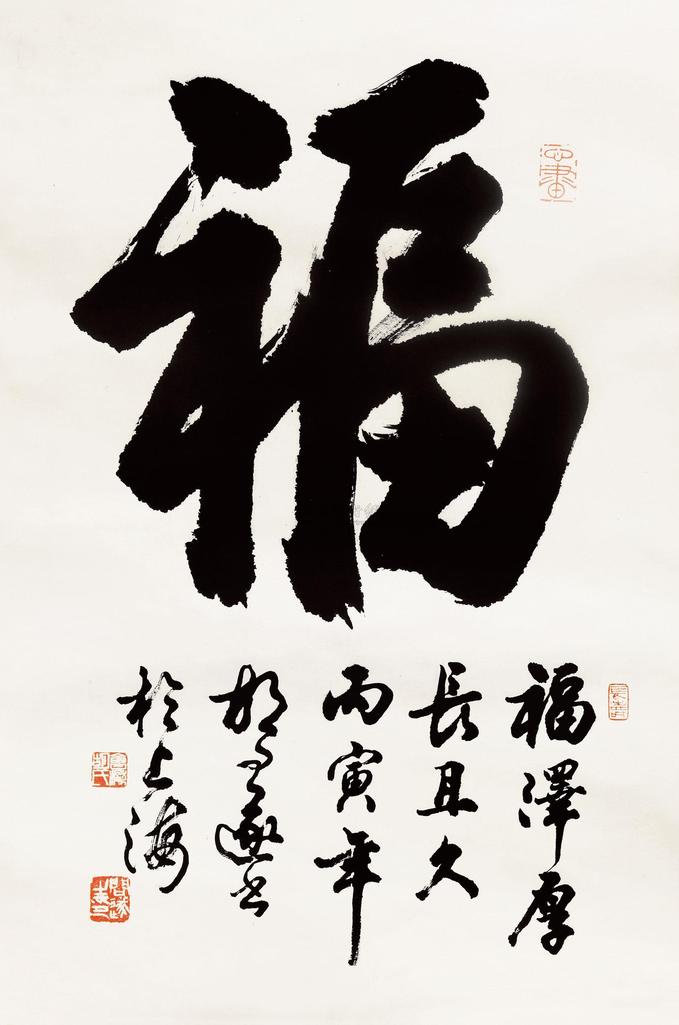 福
心畫
福澤厚
長且久
丙寅年
胡問遂書
於上海